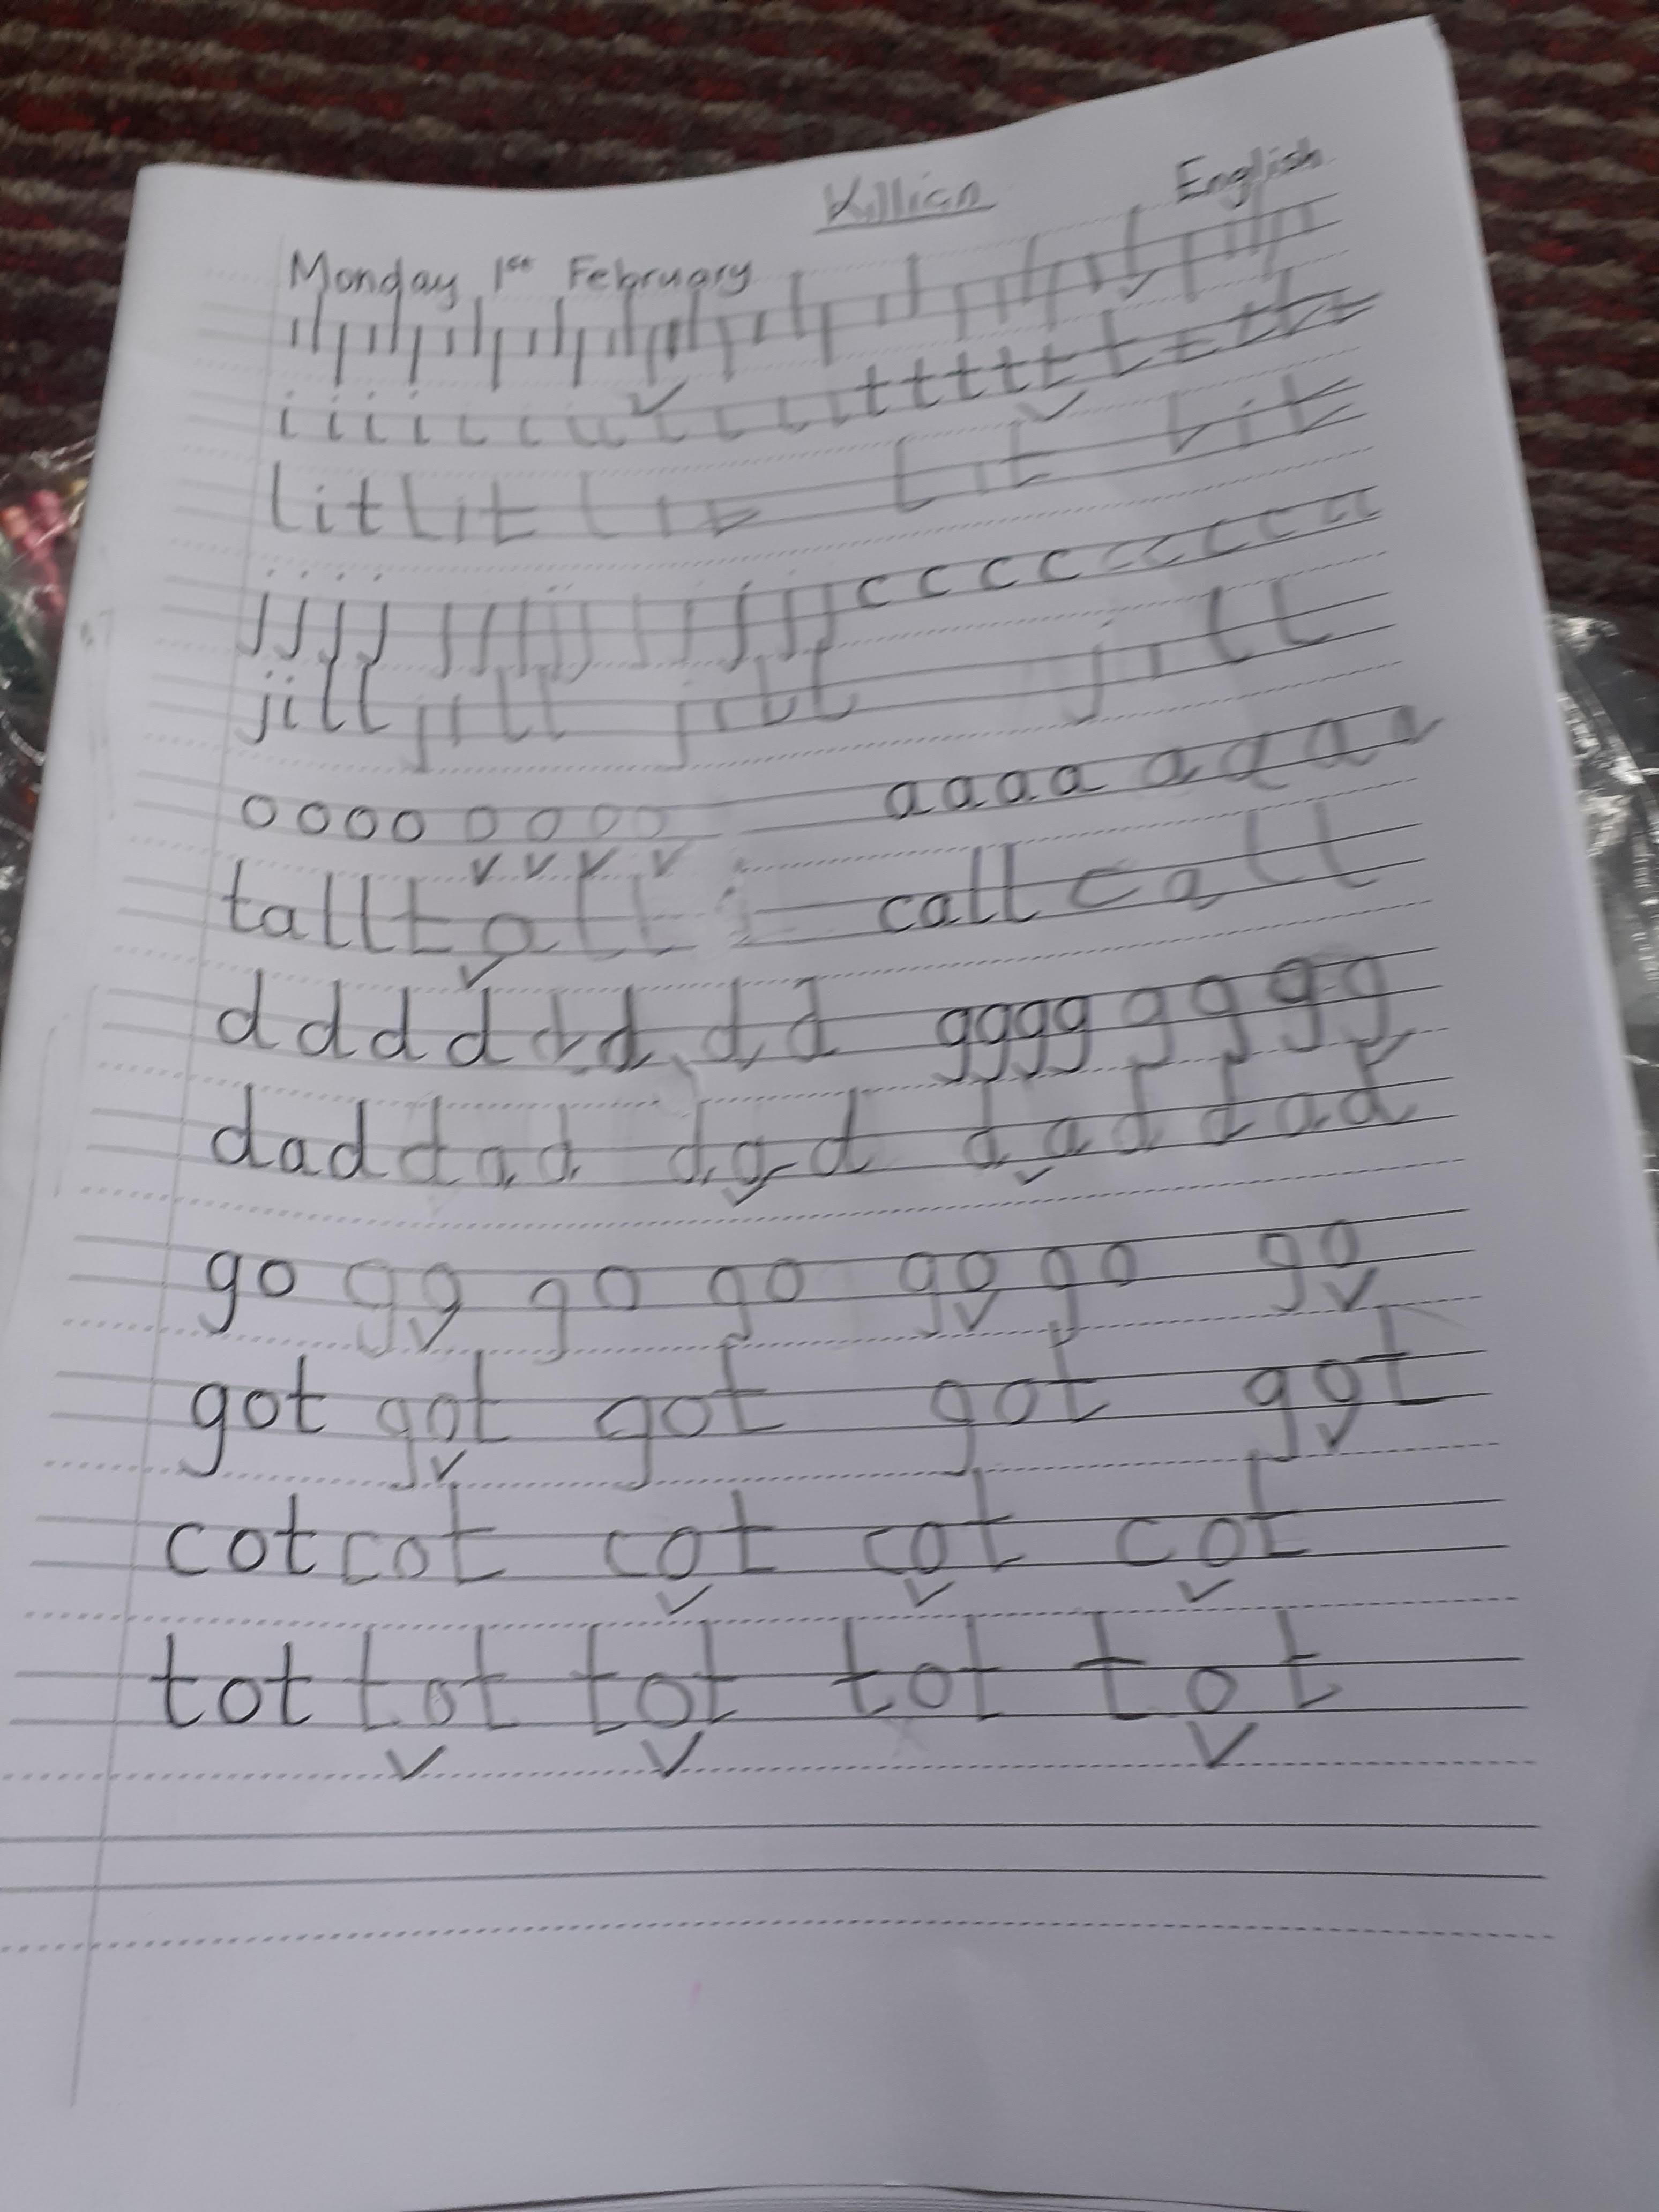 Killian English
Monday 1st February
i i i i i i i i i i i i i t t t t t t t t t t t
lit lit lit lit lit
j j j j j j j j j j j j j j c c c c c c c c c c c
jill jill jill jill
o o o o o o o o a a a a a a a a
tall tall call call
d d d d d d d d g g g g g g g g
dad dad dad dad dad
go gg go go go go go
got got got got got
cot cot cot cot cot
tot tot tot tot tot